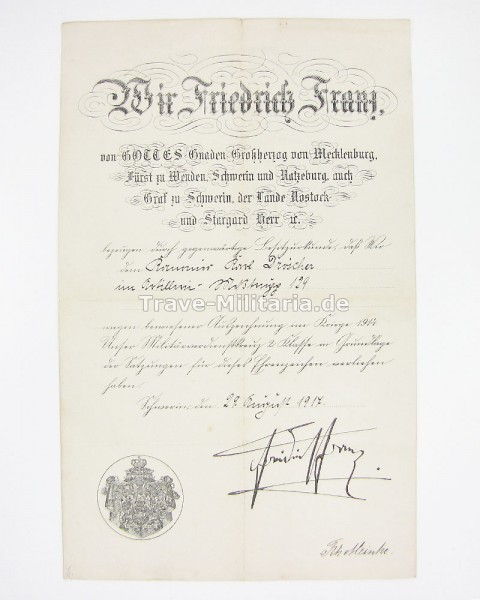 Wir Friedrich Franz,
von GOTTES Gnaden Großherzog von Mecklenburg,
Fürst zu Wenden, Schwerin und Ratzeburg, auch
Graf zu Schwerin, der Lande Rostock
und Stargard Herr ꝛc.
bezeugen durch gegenwärtige Besitzurkunde, daß Wir
dem Kanonier Karl Dröscher
im Artillerie-
Trave-Militaria.de
wegen bewiesener Auszeichnung im Kriege 1914
Unser Militärverdienstkreuz 2 Klasse in Grundlage
der Satzungen für dieses Ehrenzeichen verliehen
haben.
Schwerin, den 29. August 1917.
Friedrich Franz.